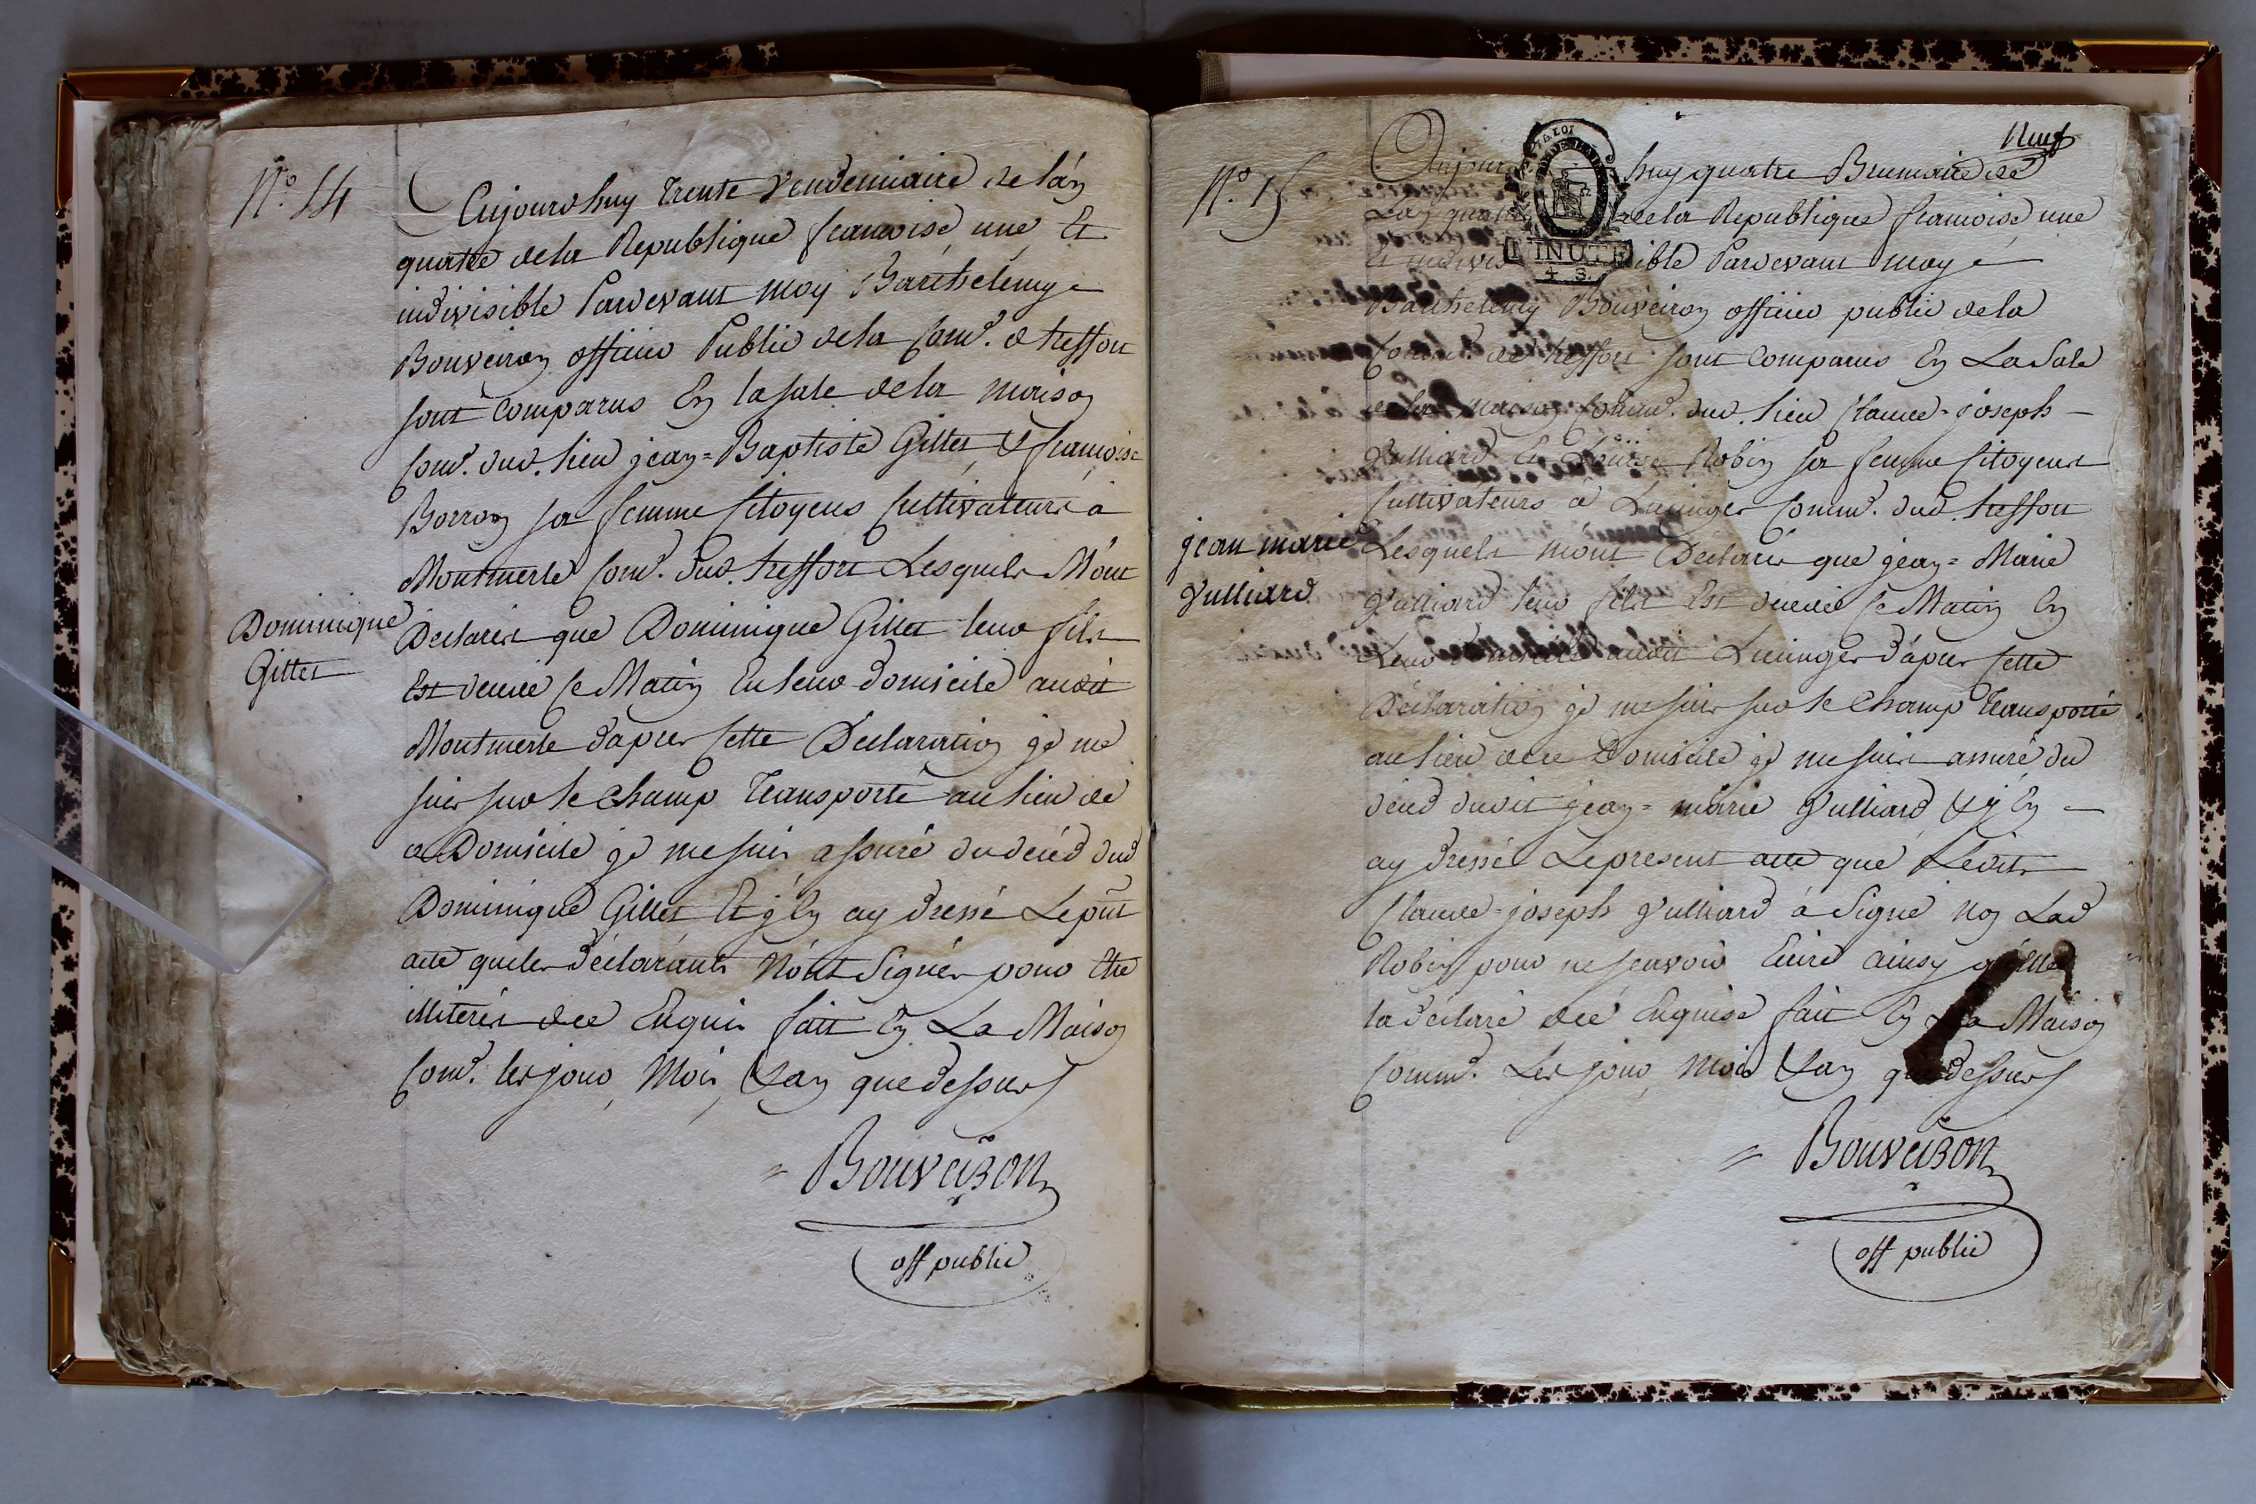 N.º 14
Aujourdhuy trente vendemiaire de l'an
quatre de la Republique francoise une Et
indivisible Pardevant moy Barthelemy
Bouveiron officier Public de la Com.e de treffort
sont comparus En la sale de la maison
Com.e dud. lieu jean=Baptiste Gillet & francoise
Borron sa femme Citoyens Cultivateurs à
Montmerle Com.e dud. treffort Lesquels M'ont
Dominique
Gillet
Declarés que Dominique Gillet leur fils
Est decedé ce Matin En leur domicile audit
Montmerle d'apres cette Declaration je me
suis sur le Champ Transporté au lieu de
ce Domicile je me suis assuré du deced dud
Dominique Gillet Et j'En ay dressé Le pñt
acte que les déclarants N'ont Signés pour Etre
illiterés de ce Enquis fait En La Maison
Com.e les jour, Mois, & an que dessus
Bouveiron
off public
Neuf
N.º 15
Aujourd huy quatre Brumaire de
L'an quatre de la Republique francoise une
Et indivisible Pardevant moy
Barthelemy Bouveiron officier public de la
Comm.e de treffort sont Comparus En La Sale
de la maison Comm.e dud. lieu Claude=joseph
Vulliard Et Robin sa femme Citoyens
Cultivateurs à Lucinges Comm.e dud. treffort
jean marie
Vulliard
Lesquels M'ont Déclarés que jean=Marie
Vulliard leur fils Est decedé ce Matin En
Leur domicile audit Lucinges d'apres Cette
Déclaration je me suis sur le Champ Transporté
au lieu de ce Domicile je me suis assuré du
deced dudit jean=marie Vulliard & j'En
ay dressé Le present acte que Ledit
Claude=joseph Vulliard à Signé Non Lad
Robin pour ne sçavoir Ecrire ainsy qu'Elle
la déclaré de cé Enquise fait En La Maison
Comm.e Les jour, Mois & an que dessus
Bouveiron
off public